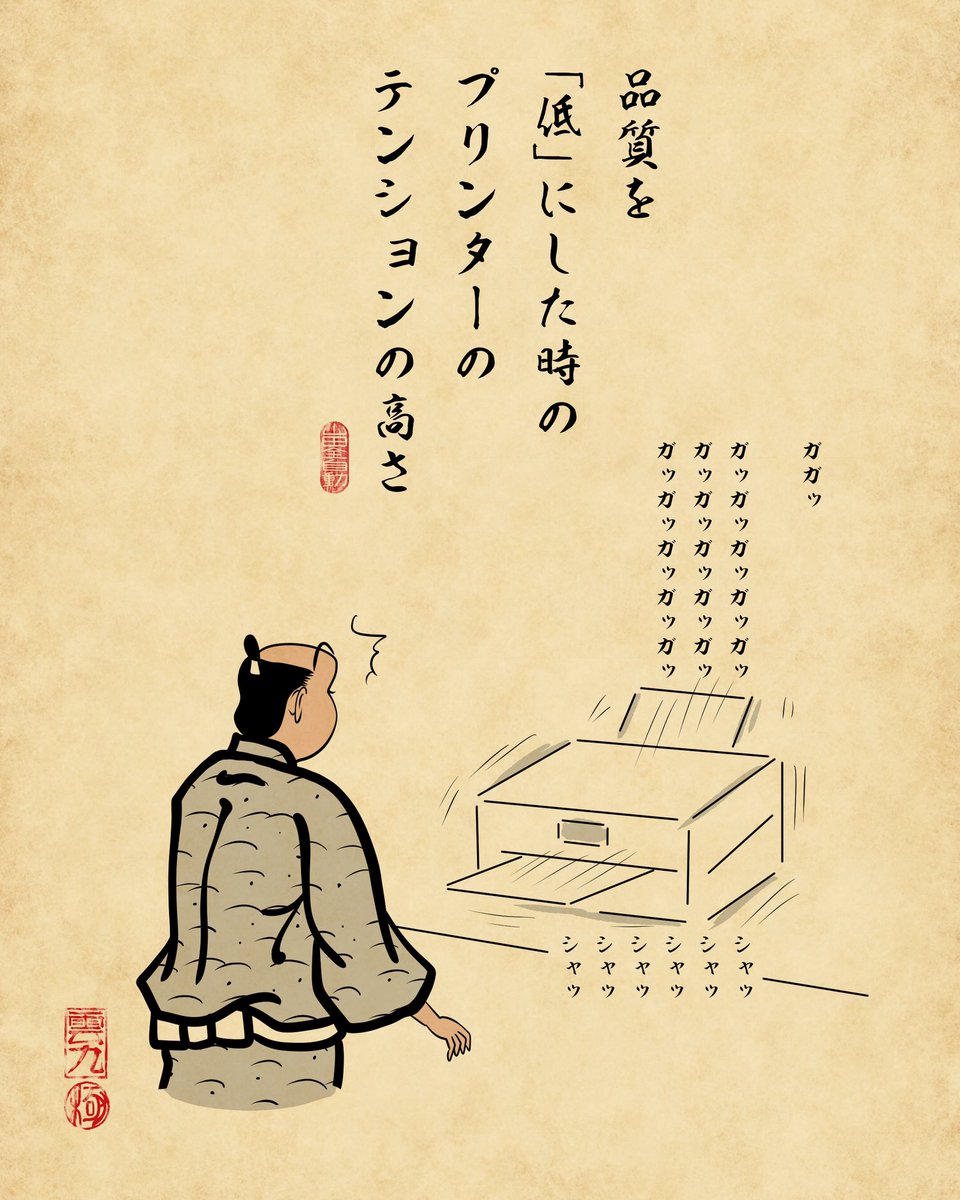 品質を
「低」にした時の
プリンターの
テンションの高さ
ガガッ
ガッガッガッガッガッ
ガッガッガッガッガッ
ガッガッガッガッガッ
シャッ
シャッ
シャッ
シャッ
シャッ
シャッ